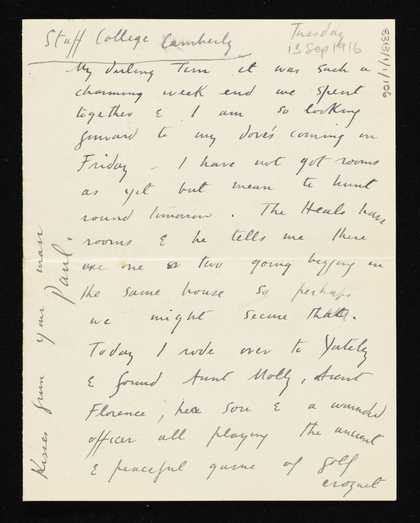 Staff College Camberly
Tuesday
13 Sep 1916
8313/1/1/106
My darling Tim it was such a
charming week end we spent
together & I am so looking
forward to my dove's coming on
Friday - I have not got rooms
as yet but mean to hunt
round tomorrow. The Heals have
rooms & he tells me there
are one or two going begging in
the same house so perhaps
we might secure that.
Today I rode over to Yately
& found Aunt Molly, Aunt
Florence, her son & a wounded
officer all playing the ancient
& peaceful game of golf
croquet
Kisses from your man
Paul.